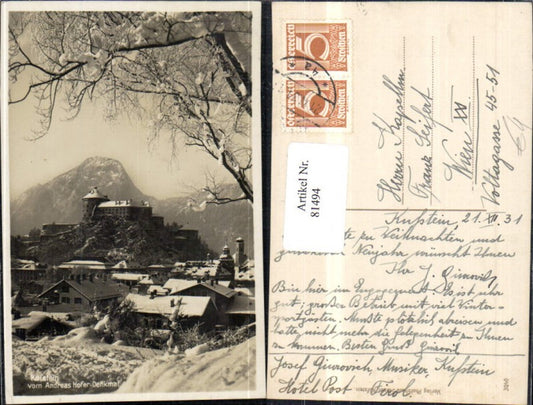 Kufstein
vom Andreas Hofer-Denkmal
Österreich
5
Groschen
Österreich
5
Groschen
Artikel Nr.
81494
Herrn Kapellm.
Franz Seifert
Wien XX
Voltagasse 45-51
Kufstein 21. XII. 31
zu Weihnachten und
Neujahr wünscht Ihnen
Ihr J.
Bin hier im Engagement. Es ist sehr
gut; großer Betrieb mit viel Winter-
sportgästen. Musste plötzlich abreisen und
hatte nicht mehr die Gelegenheit zu Ihnen
zu kommen. Besten Gruß
Josef Musiker, Kufstein
Hotel Post Tirol.
Verlag